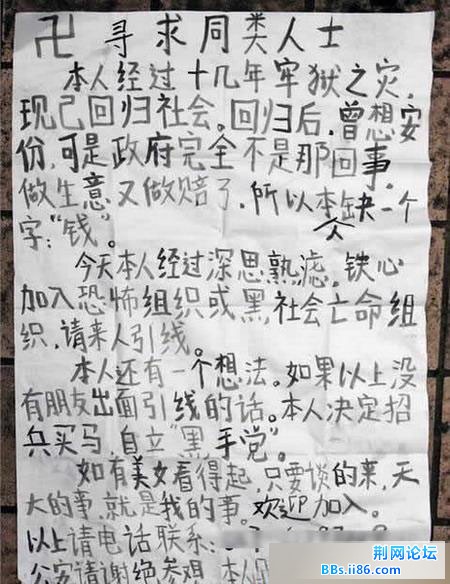 卍 寻求同类人士
本人经过十几年牢狱之灾,
现已回归社会。回归后,曾想安
份,可是政府完全不是那回事。
做生意又做赔了,所以本人缺一个
字:“钱”。
今天本人经过深思熟虑,铁心
加入恐怖组织或黑社会亡命组
织,请来人引线。
本人还有一个想法。如果以上没
有朋友出面引线的话。本人决定招
兵买马,自立“黑手党”。
如有美女看得起,只要谈的来,天
大的事,就是我的事。欢迎加入。
以上请电话联系:
公安请谢绝参观,本人
荆网论坛
BBs.ii86.com